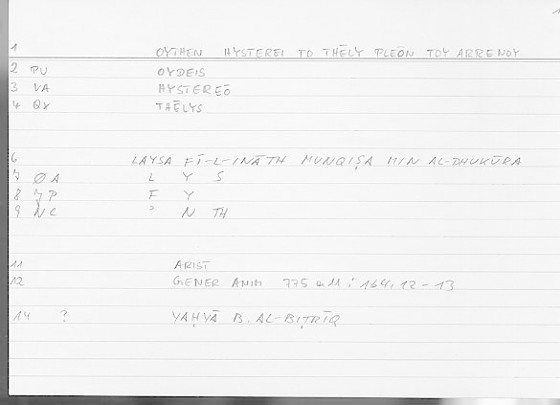 1 OYTHEN HYSTEREI TO THĒLY PLEŌN TOY ARRENOY
2 PU OYDEIS
3 VA HYSTEREŌ
4 QX THĒLYS
6 LAYSA FĪ-L-INĀTH MUNQIṢA MIN AL-DHUKŪRA
7 ØA L Y S
8 YP F Y
9 NC ʾ N TH
11 ARIST
12 GENER ANIM 775 : 164,12-13
14 ? YAḤYĀ B. AL-BIṬRĪQ